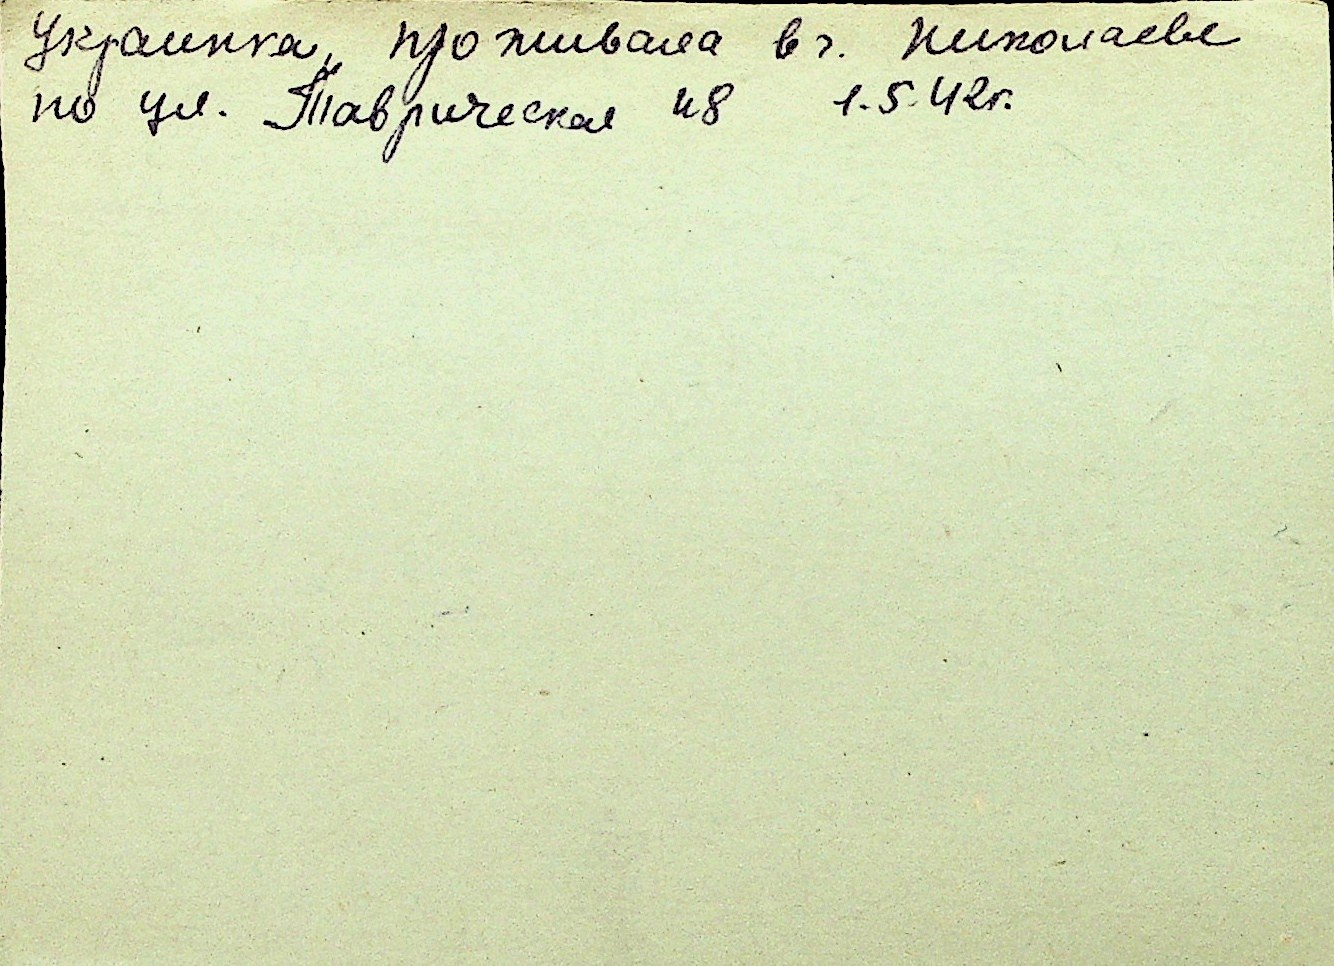 Украинка, проживала в г. Николаеве
по ул. Таврическая 48 1.5.42г.